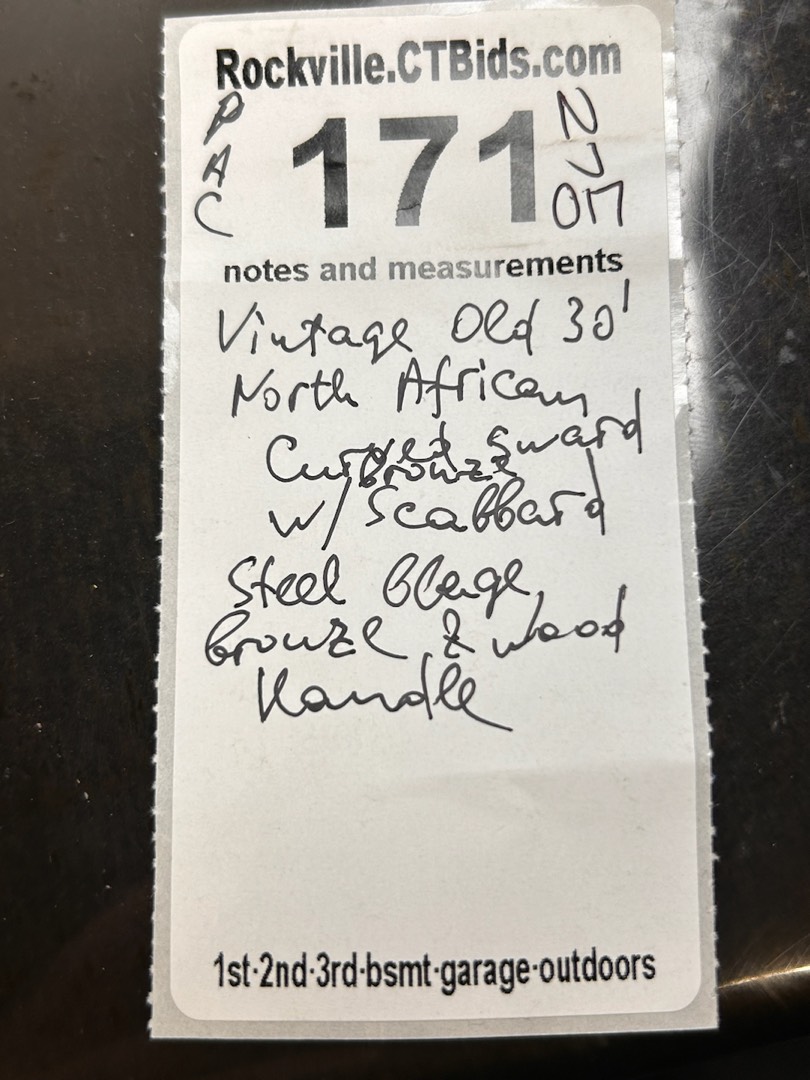 Rockville.CTBids.com
PAC
171
notes and measurements
Vintage Old 30'
North African
Curved Sward
Bronze
w/ Scabbard
Steel Blade,
Bronze & Wood
Handle
1st·2nd·3rd·bsmt·garage·outdoors